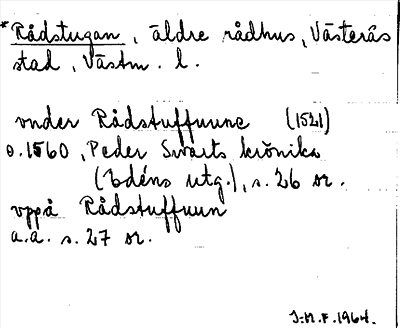 *Rådstugan, äldre rådhus, Västerås
stad, Västm. l.
vnder Rådstuffuune (1521)
o. 1560, Peder Swarts krönika
(Edéns utg.), s. 26 or.
vppå Rådstuffuun
a.a. s. 27 or.
J.M.F. 1964.